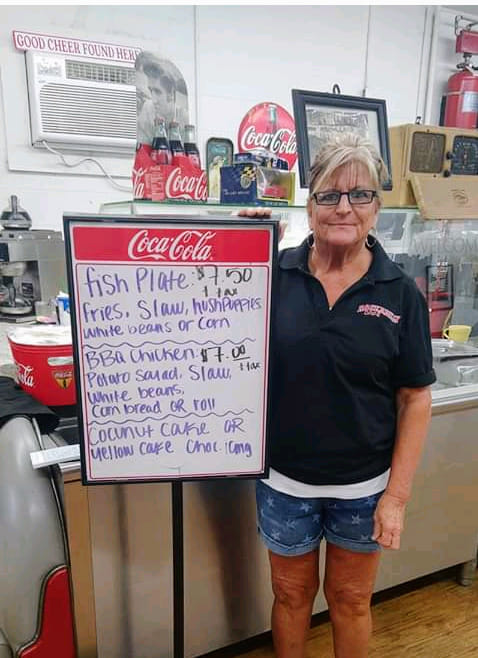 GOOD CHEER FOUND HERE
Coca-Cola
Coca-Cola
Coca-Cola
fish Plate: $7.50
+ tax
fries, Slaw, hushpuppies
white beans or Corn
BBQ Chicken: $7.00
+ tax
Potato Salad, Slaw,
white beans,
Corn bread OR roll
Coconut Cake OR
yellow Cake Choc. icing